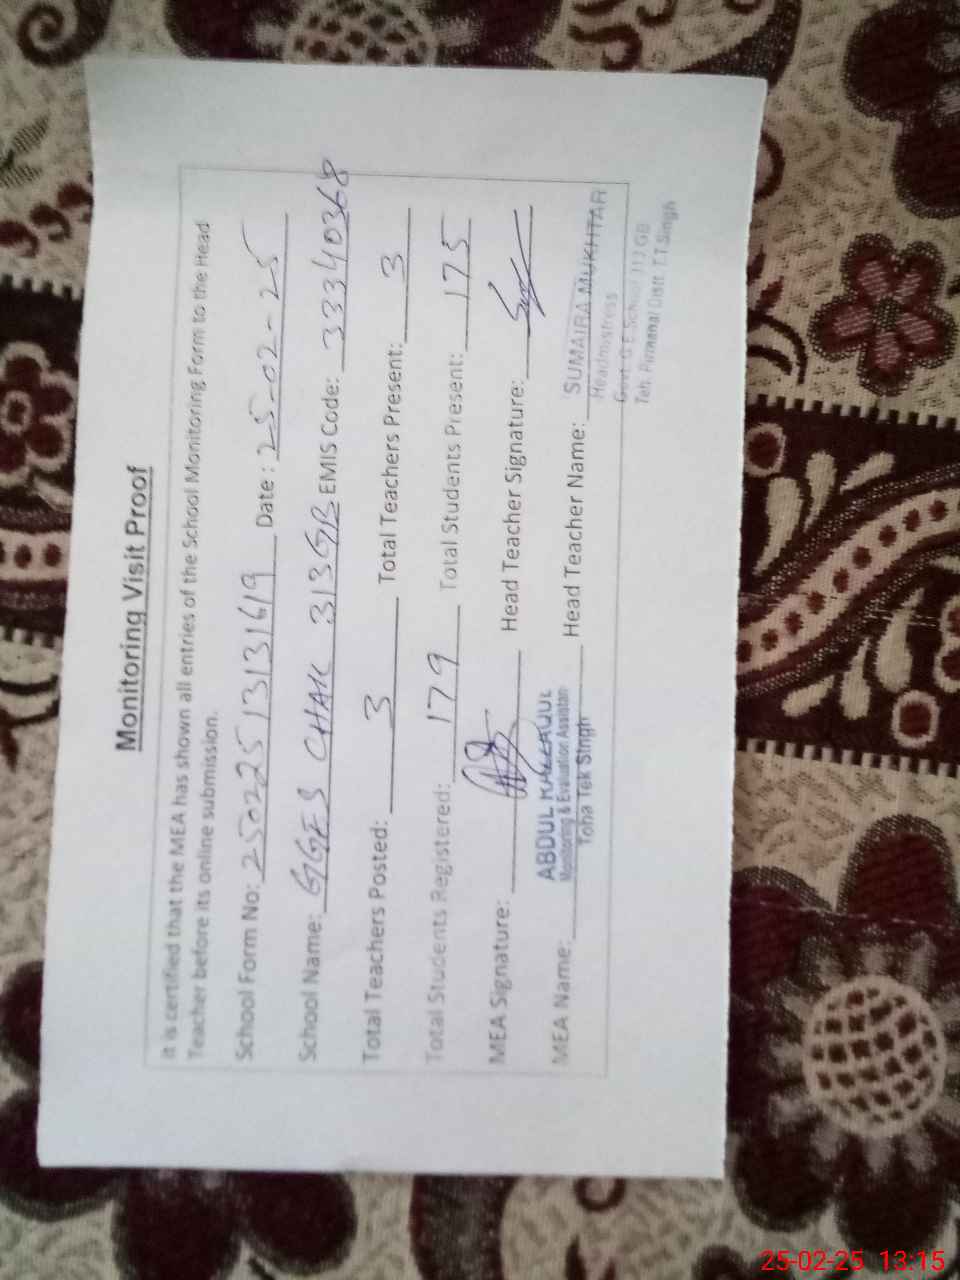 Monitoring Visit Proof
It is certified that the MEA has shown all entries of the School Monitoring Form to the Head
Teacher before its online submission.
School Form No: 250225131619 Date : 25-02-25
School Name: GGES CHAK 313GB EMIS Code: 33340368
Total Teachers Posted: 3 Total Teachers Present: 3
Total Students Registered: 179 Total Students Present: 175
MEA Signature: Head Teacher Signature:
ABDUL
Monitoring & Evaluation Assistan
Toba Tek Singh
MEA Name: Head Teacher Name: SUMAIRA MUKHTAR
Headmistress
Govt. G E School 313 GB
Teh. Pirmahal Distt T.T Singh
25-02-25 13:15